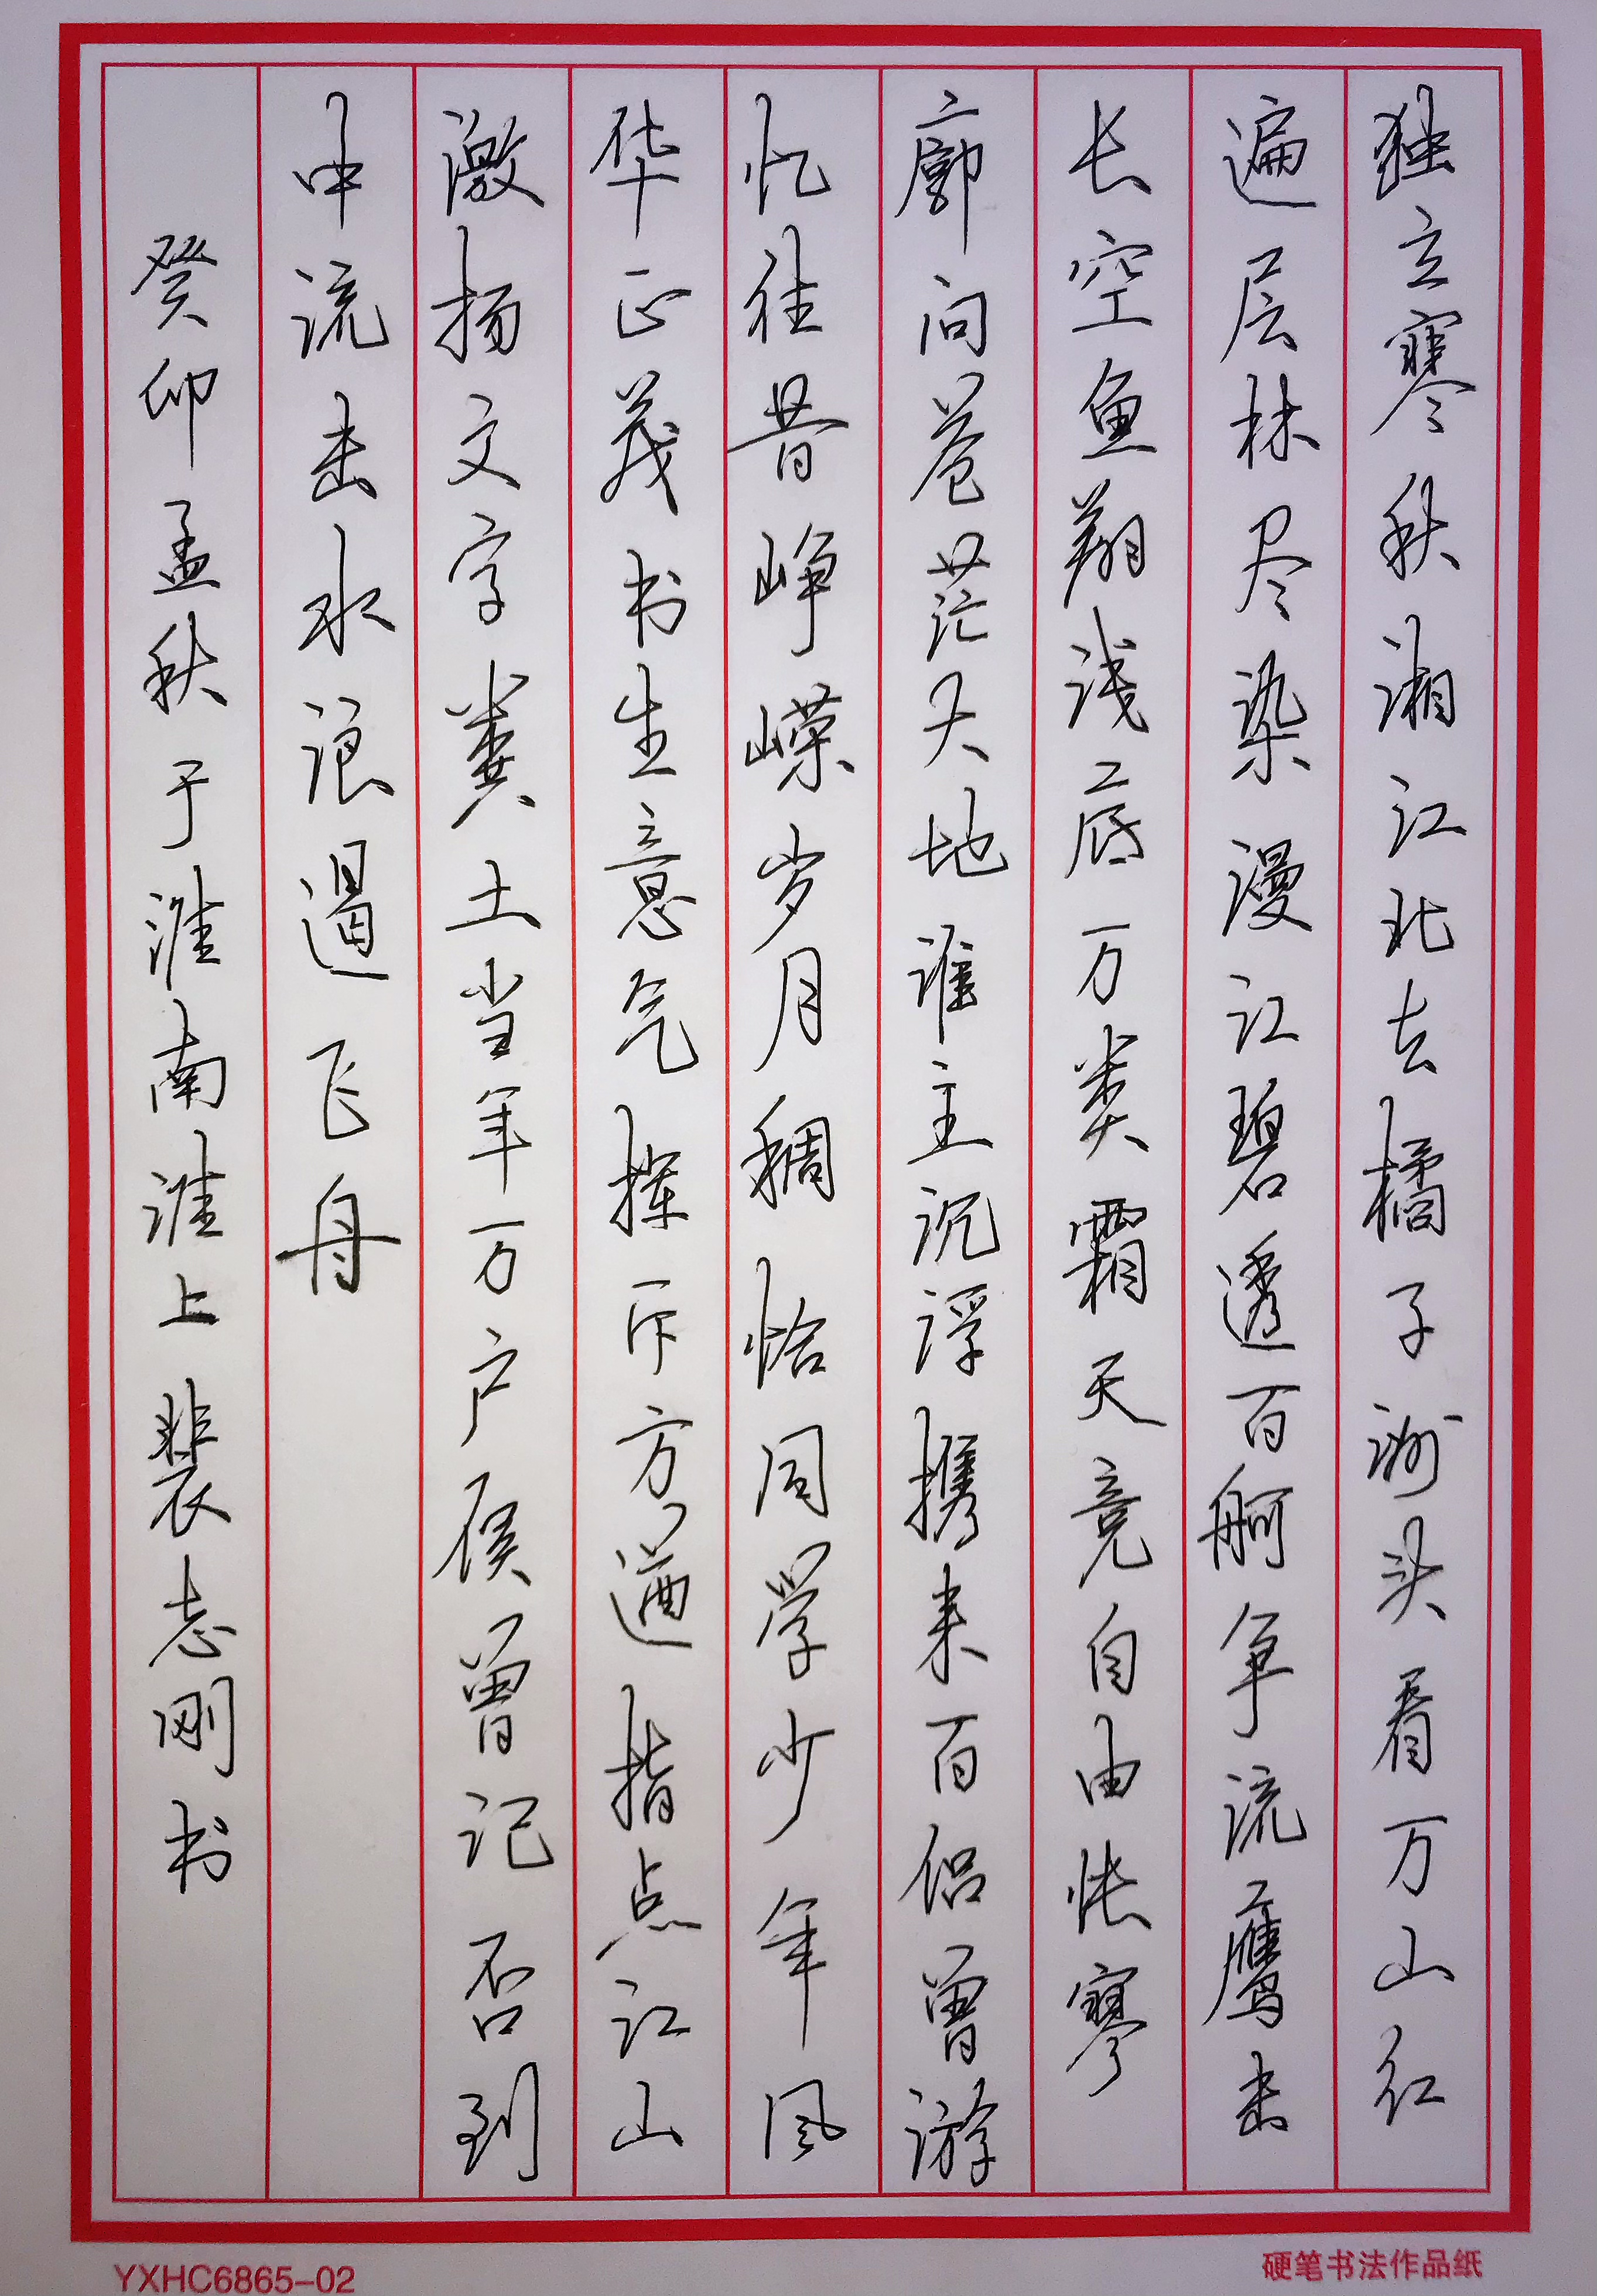 独立寒秋湘江北去橘子洲头看万山红
遍层林尽染漫江碧透百舸争流鹰击
长空鱼翔浅底万类霜天竞自由怅寥
廓问苍茫大地谁主沉浮携来百侣曾游
忆往昔峥嵘岁月稠恰同学少年风
华正茂书生意气挥斥方遒指点江山
激扬文字粪土当年万户侯曾记否到
中流击水浪遏飞舟
癸卯孟秋于淮南淮上裴志刚书
YXHC6865-02
硬笔书法作品纸